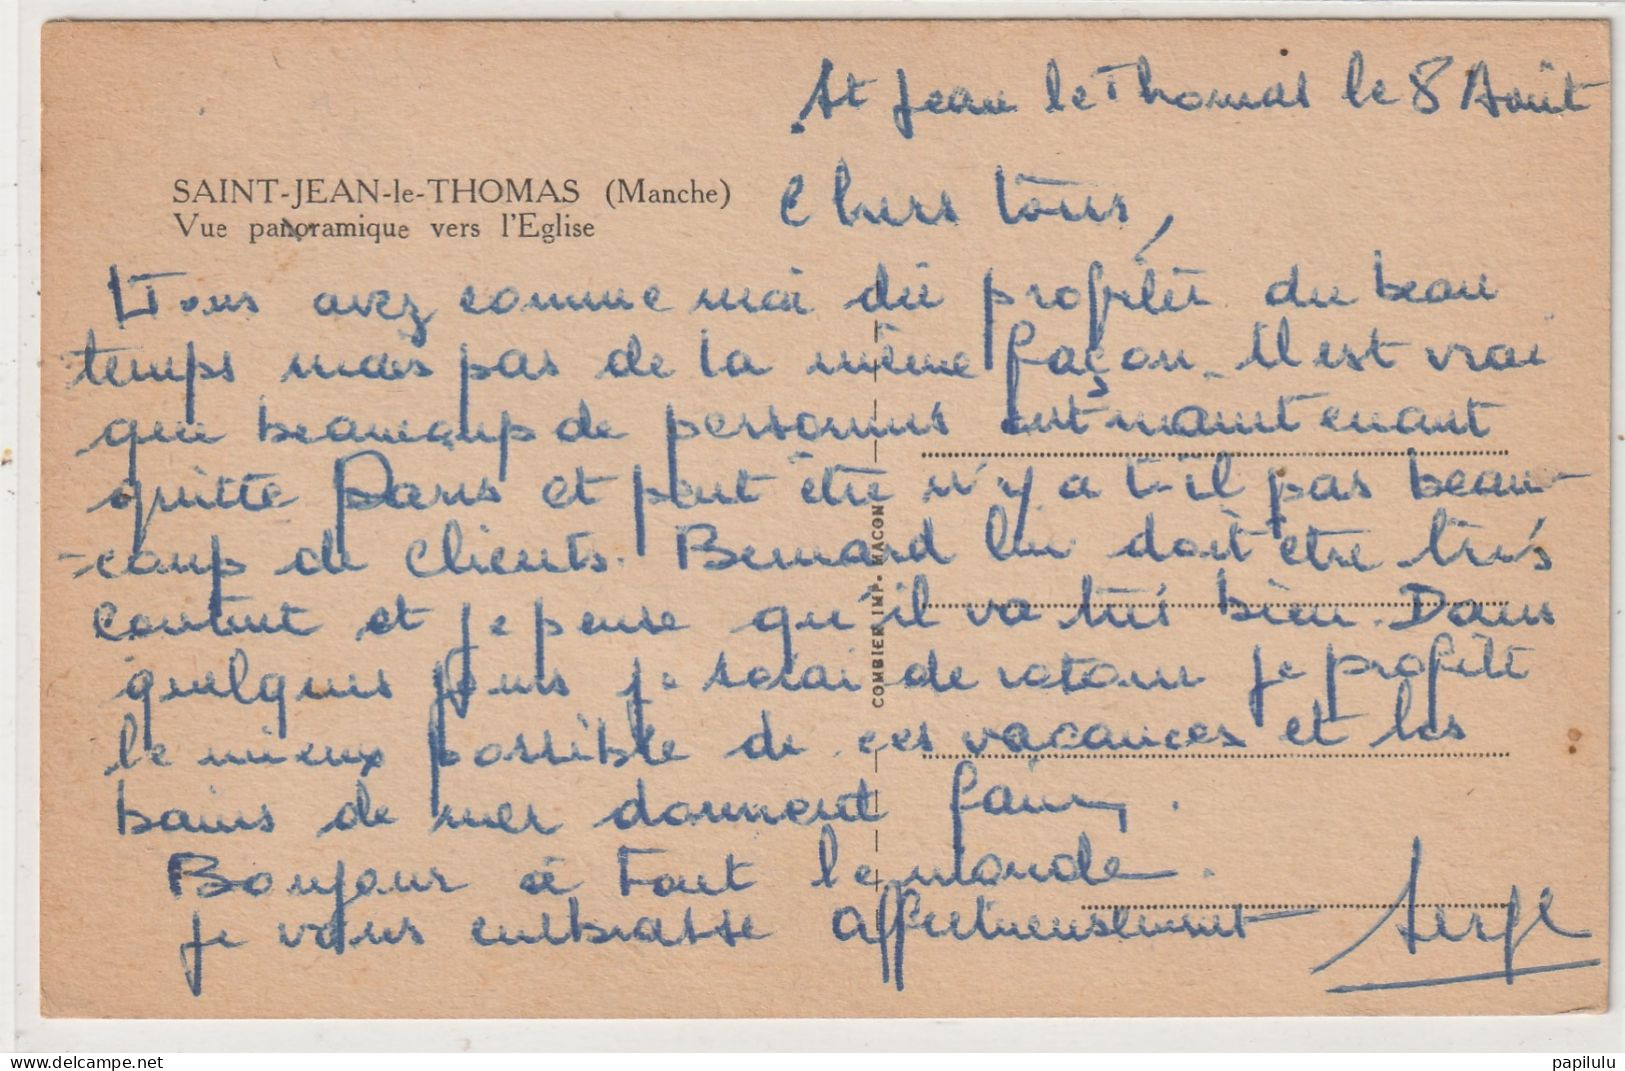 St Jean le Thomas le 8 Août
SAINT-JEAN-le-THOMAS (Manche)
Vue panoramique vers l'Eglise
Chers tous,
Vous avez comme moi dû profiter du beau
temps mais pas de la même façon. Il est vrai
que beaucoup de personnes ont maintenant
quitté Paris et peut être n'y a t-il pas beau-
-coup de clients. Bernard lui doit être très
content et je pense qu'il va très bien. Dans
quelques jours je serai de retour je profite
le mieux possible de ces vacances et les
bains de mer donnent faim.
Bonjour à tout le monde.
je vous embrasse affectueusement Serge
COMBIER IMP. MACON
papilulu